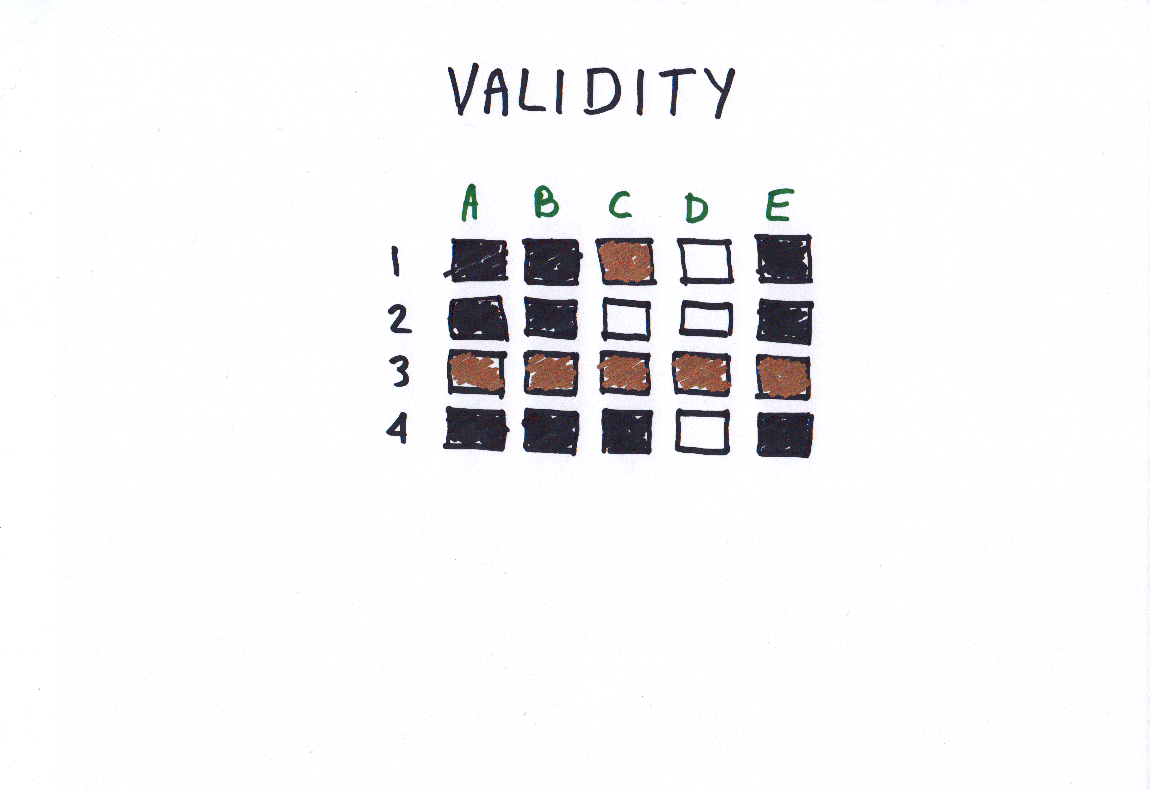 VALIDITY
A B C D E
1
2
3
4